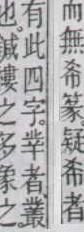 而無希篆疑希者
有此四字丵者叢
也黹鏤之多象之